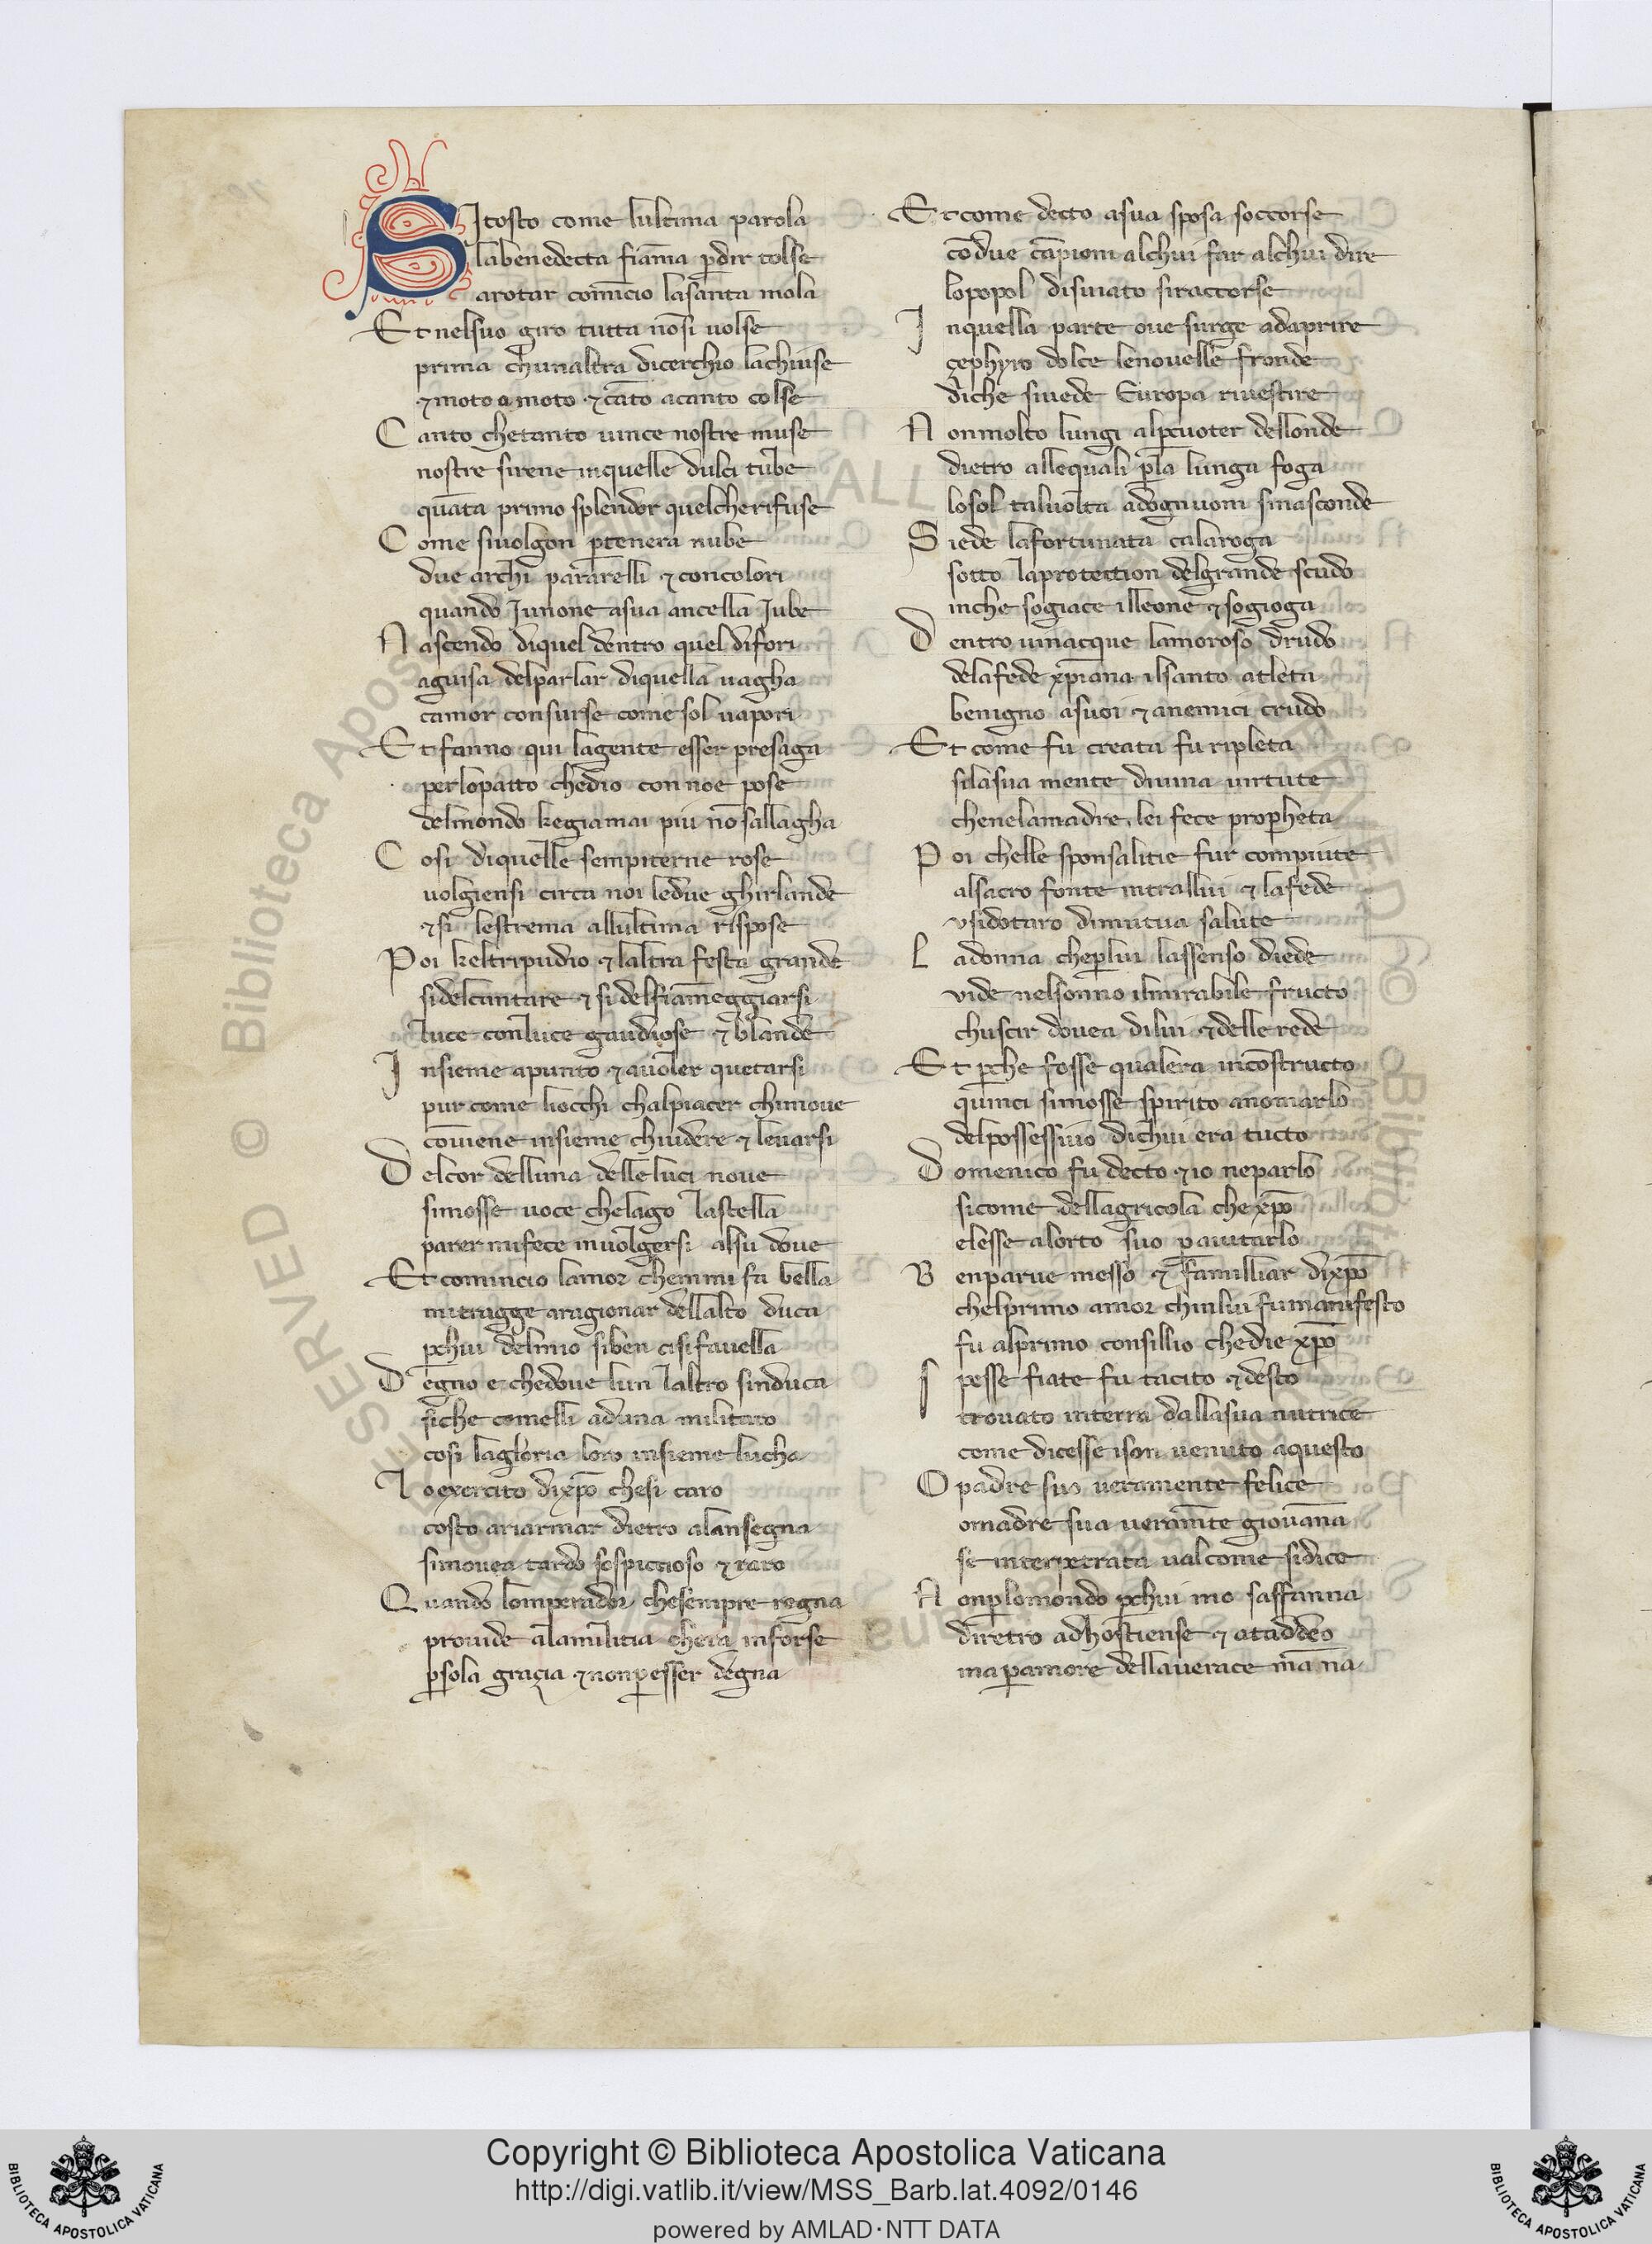 SI tosto come lultima parola
labenedecta fiāma ꝑdir tolse
arotar comīcio lasanta mola
Et nelsuo giro tutta nōsi uolse
prima chunaltra dicerchio lachiuise
⁊ moto a moto ⁊ cāto acanto colse
Canto chetanto uince nostre muse
nostre sirene inquelle dulci tube
quāta primo splendor quelcherifuse
Come siuolgon ꝑtenera nube
due archi pararelli ⁊ concolori
quando Junone asua ancella Jube
Nascendo diquel dentro quel difori
aguisa delparlar diquella uagha
camor consunse come sol uapori
Et fanno qui lagente esser presaga
perlopatto chedio con noe pose
delmondo kegiamai piu nō sallagha
Cosi diquelle sempiterne rose
uolgiensi circa noi ledue ghirlande
⁊ si lestrema allultima rispose
Poi keltripudio ⁊ laltra festa grande
sidelcantare ⁊ si delfiāmeggiarsi
luce conluce gaudiose ⁊ blande
Insieme apunto ⁊ auoler quetarsi
pur come liocchi chalpiacer chimoue
cōuiene insieme chiudere ⁊ leuarsi
Delcor delluna delle luci noue
simosse uoce chelago lastella
parer mifece inuolgersi alsu doue
Et comincio lamor chemmi fa bella
mitragge aragionar dellalto duca
ꝑchui delmio siben cisifauella
Degno e chedoue lun laltro sinduca
siche comelli aduna militaro
cosi lagloria loro insieme lucha
Loexercito dixp̄o chesi caro
costo ariarmar dietro alansegna
simouea tardo sospiccioso ⁊ raro
Quando lomperador chesempre regna
prouide alamilitia chera inforse
ꝑsola gracia ⁊ nonꝑesser degna
Et come decto asua sposa soccorse
cōdue cāpioni alchui far alchui dire
lopopol disuiato siraccorse
Inquella parte oue surge adaprire
çephyro dolce lenouelle fronde
diche siuede Europa riuestire
Nonmolto lungi alꝑcuoter dellonde
dietro allequali ꝑla lunga foga
losol taluolta adognuom sinasconde
Siede lafortunata calaroga
sotto laprotettion delgrande scudo
inche sogiace illeone ⁊ sogioga
Dentro uinacque lamoroso drudo
delafede xp̄iana ilsanto atleta
benigno asuoi ⁊ anemici crudo
Et come fu creata fu ripleta
silasua mente diuina uirtute
chenelamadre lei fece propheta
Poi chelle sponsalitie fur compiute
alsacro fonte intrallui ⁊ lafede
vsidotaro dimutua salute
Ladonna cheꝑlui lassenso diede
vide nelsonno ilmirabile fructo
chuscir douea dilui ⁊ delle rede
Et ꝑche fosse qualera incōstructo
quinci simosse spirito anomarlo
delpossessiuo dichui era tucto
Domenico fu decto ⁊ io neparlo
sicome dellagricola che xp̄o
elesse alorto suo ꝑaiutarlo
Benparue messo ⁊ familliar dixp̄o
chelprimo amor chinlui fumanifesto
fu alprimo consillio chedie xp̄o
Spesse fiate fu tacito ⁊ desto
trouato interra dallasua nutrice
come dicesse ison uenuto aquesto
O padre suo ueramente felice
omadre sua ueramēte giouāna
se interpetrata ualcome sidice
Nonꝑlomondo ꝑchui mo saffanna
diretro adhostiense ⁊ ataddeo
ma ꝑamore dellauerace māna
Copyright © Biblioteca Apostolica Vaticana
http://digi.vatlib.it/view/MSS_Barb.lat.4092/0146
powered by AMLAD·NTT DATA
BIBLIOTECA APOSTOLICA VATICANA
BIBLIOTECA APOSTOLICA VATICANA